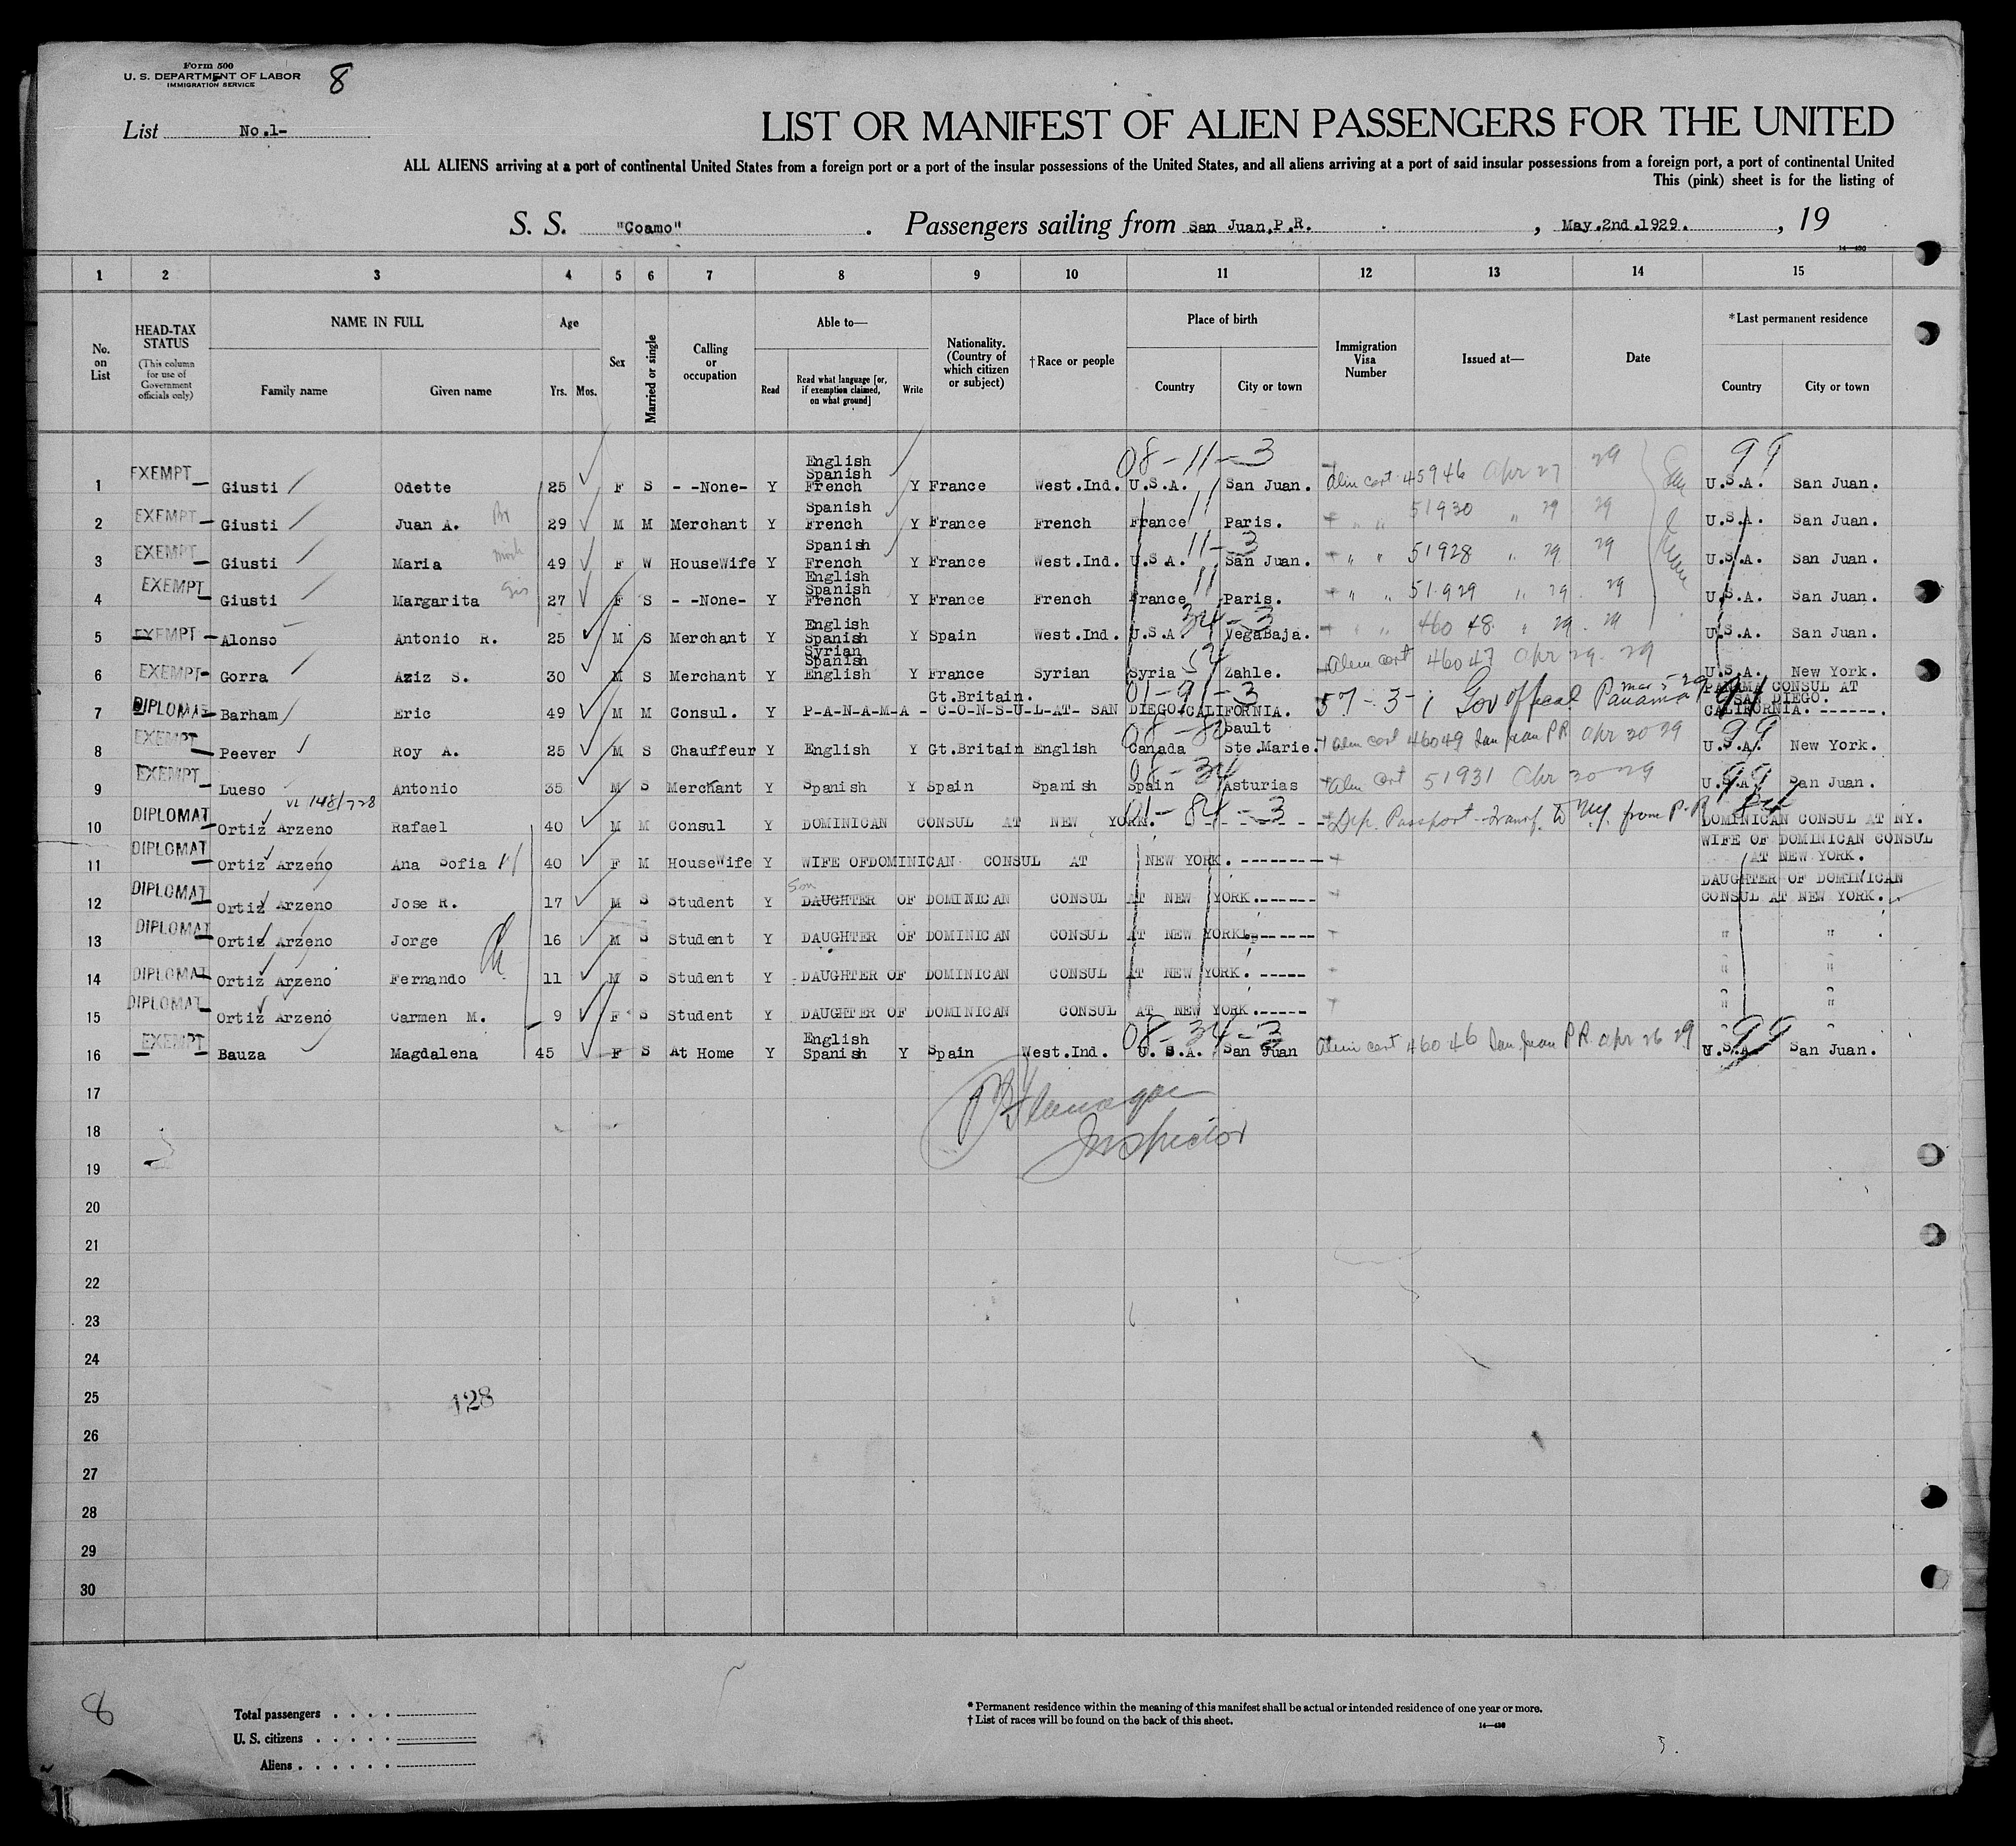 Form 500
U. S. DEPARTMENT OF LABOR
IMMIGRATION SERVICE
8
List No.1-
LIST OR MANIFEST OF ALIEN PASSENGERS FOR THE UNITED
ALL ALIENS arriving at a port of continental United States from a foreign port or a port of the insular possessions of the United States, and all aliens arriving at a port of said insular possessions from a foreign port, a port of continental United
This (pink) sheet is for the listing of
S. S. "Coamo" . Passengers sailing from San Juan, P.R. , May.2nd.1929. , 19
14—430
1 2 3 4 5 6 7 8 9 10 11 12 13 14 15
No. on List
HEAD-TAX STATUS (This column for use of Government officials only)
NAME IN FULL Family name Given name
Age Yrs. Mos.
Sex
Married or single
Calling or occupation
Able to— Read Read what language [or, if exemption claimed, on what ground] Write
Nationality. (Country of which citizen or subject)
†Race or people
Place of birth Country City or town
Immigration Visa Number
Issued at—
Date
*Last permanent residence Country City or town
08-11-3 99
1 EXEMPT Giusti Odette 25 F S - -None- Y English Spanish French Y France West.Ind. U.S.A. San Juan. Alien cert 45946 Apr 27 29 U.S.A. San Juan.
11
2 EXEMPT Giusti Juan A. Br 29 M M Merchant Y Spanish French Y France French France Paris. " " 51930 " 29 29 U.S.A. San Juan.
11-3
3 EXEMPT Giusti Maria 49 F W HouseWife Y Spanish French Y France West.Ind. U.S.A. San Juan. " " 51928 " 29 29 U.S.A. San Juan.
11
4 EXEMPT Giusti Margarita 27 F S - -None- Y English Spanish French Y France French France Paris. " " 51929 " 29 29 U.S.A. San Juan.
34-3
5 EXEMPT Alonso Antonio R. 25 M S Merchant Y English Spanish Y Spain West.Ind. U.S.A VegaBaja. " " 46048 " 29 29 U.S.A. San Juan.
6 EXEMPT Gorra Aziz S. 30 M S Merchant Y Syrian Spanish English Y France Syrian Syria Zahle. Alien cert 46047 Apr 29 29 U.S.A. New York.
01-91-3
7 DIPLOMAT Barham Eric 49 M M Consul. Y Gt.Britain. P-A-N-A-M-A - C-O-N-S-U-L-AT- SAN DIEGO CALIFORNIA. 57-3-1 Gov Offical Panama Mar 5 29 PANAMA CONSUL AT SAN DIEGO. CALIFORNIA. ------.
99
8 EXEMPT Peever Roy A. 25 M S Chauffeur Y English Y Gt.Britain English Canada Sault Ste.Marie. Alien cert 46049 San Juan PR Apr 20 29 U.S.A. New York.
99
9 EXEMPT Lueso Antonio 35 M S Merchant Y Spanish Y Spain Spanish Spain Asturias Alien Cert 51931 Apr 30 29 U.S.A San Juan.
VL 148/728
01-84-3
10 DIPLOMAT Ortiz Arzeno Rafael 40 M M Consul Y DOMINICAN CONSUL AT NEW YORK. - - - - - - Dip. Passport - Transf. to N.Y. from P.R. DOMINICAN CONSUL AT NY.
11 DIPLOMAT Ortiz Arzeno Ana Sofia 40 F M HouseWife Y WIFE OFDOMINICAN CONSUL AT NEW YORK. -------- WIFE OF DOMINICAN CONSUL AT NEW YORK.
Son
12 DIPLOMAT Ortiz Arzeno Jose R. 17 M S Student Y DAUGHTER OF DOMINICAN CONSUL AT NEW YORK.------ DAUGHTER OF DOMINICAN CONSUL AT NEW YORK.
13 DIPLOMAT Ortiz Arzeno Jorge 16 M S Student Y DAUGHTER OF DOMINICAN CONSUL AT NEW YORK ------ " "
Ch
14 DIPLOMAT Ortiz Arzeno Fernando 11 M S Student Y DAUGHTER OF DOMINICAN CONSUL AT NEW YORK. ----- " "
15 DIPLOMAT Ortiz Arzeno Carmen M. 9 F S Student Y DAUGHTER OF DOMINICAN CONSUL AT NEW YORK.----- " "
08-34-3 99
16 EXEMPT Bauza Magdalena 45 F S At Home Y English Spanish Y Spain West.Ind. U. S.A. San Juan Alien cert 46046 San Juan P.R. Apr 26 29 U.S.A San Juan.
17
Flanagan
18
Inspector
19
20
21
22
23
24
25
128
26
27
28
29
30
8
Total passengers . . . .
U. S. citizens . . . . .
Aliens . . . . . .
* Permanent residence within the meaning of this manifest shall be actual or intended residence of one year or more.
† List of races will be found on the back of this sheet.
14—430